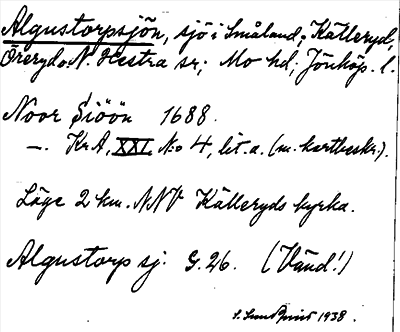 Algustorpsjön, sjö i Småland; Källeryd,
Öreryd o. N. Hestra sr; Mo hd; Jönköp. l.
Noor Siöön 1688.
—. Kr A, XXI. N:o 4, lit. a. (m. kartbeskr.).
Läge 2 km. NNV Källeryds kyrka.
Algustorp sj. G. 26. (Vänd!)
S. Lundquist 1938.